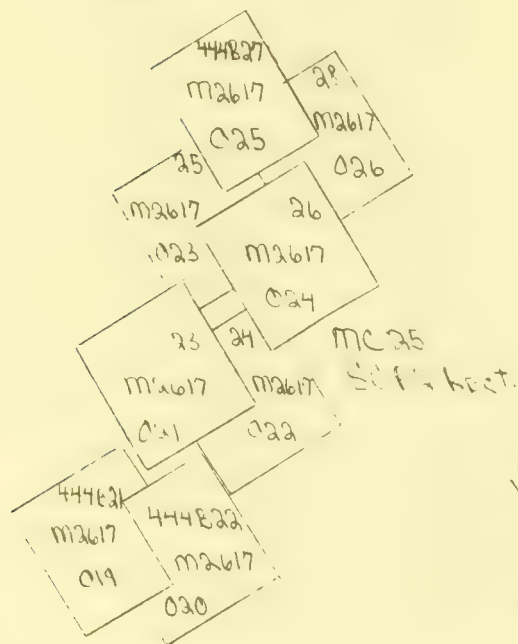 444B27
M2617
O25
28
M2617
O26
25
M2617
O23
26
M2617
O24
23
M2617
O21
24
M2617
O22
MC 25
444E21
M2617
O19
444E22
M2617
O20